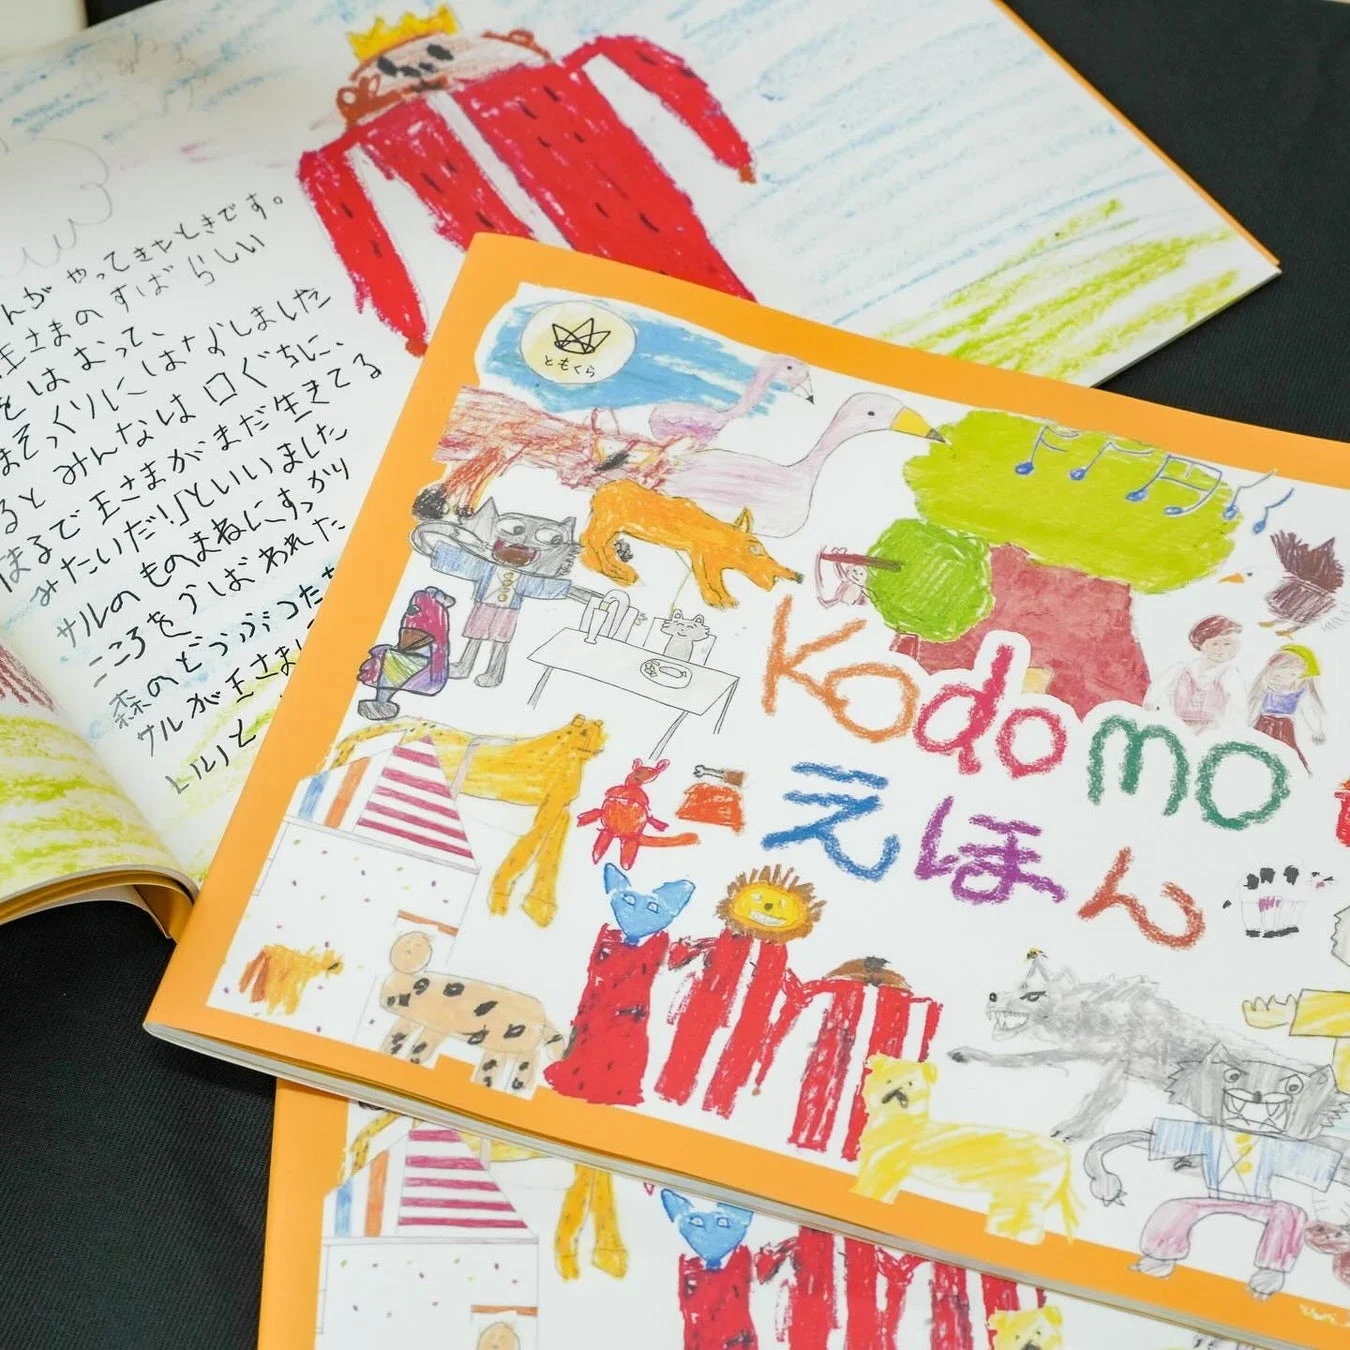 んが やってきたときです。
王さまの すばらしい
をはおって、
まそっくりに はなしました
ると みんなは 口ぐちに、
まるで王さまがまだ生きてる
みたいだ!」といいました
サルの ものまねにすっかり
こころを うばわれた
森のどうぶつた
サルが王さま
いいと
ともくら
Kodomo
えほん